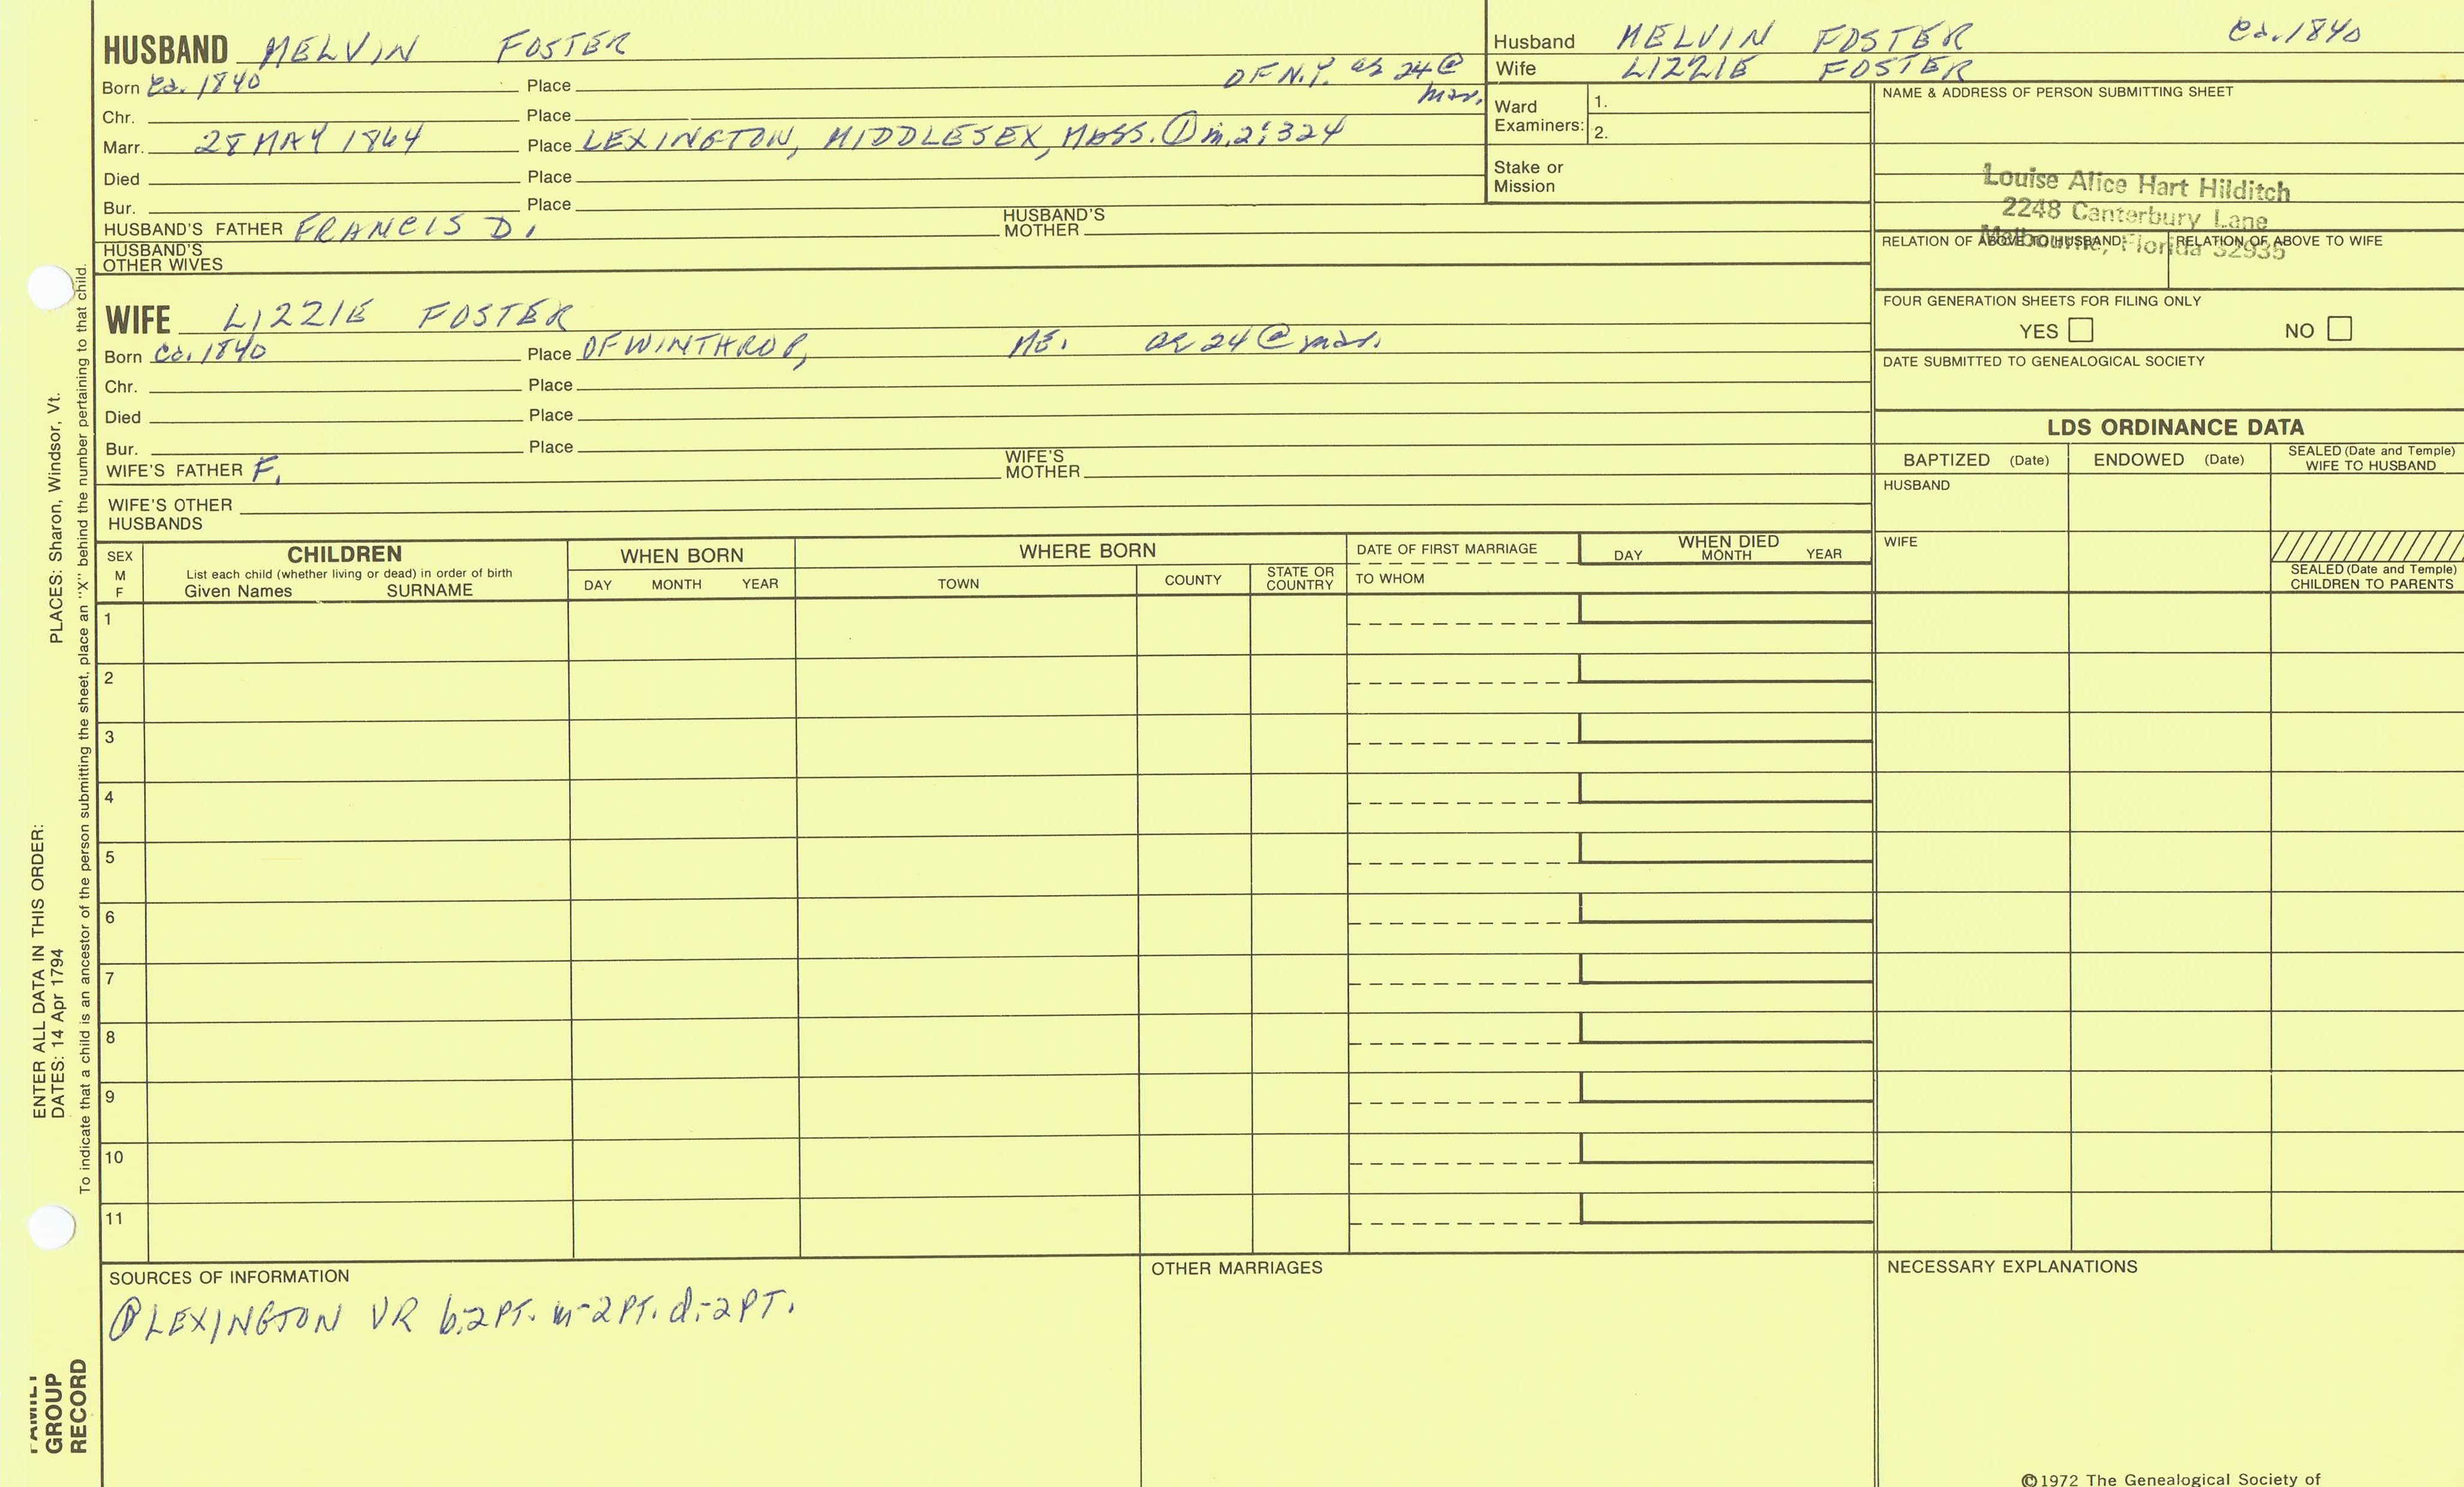 HUSBAND MELVIN FOSTER
Born ca. 1840 Place OF N.Y. ag 24 @ mar.
Chr. Place
Marr. 28 MAY 1864 Place LEXINGTON, MIDDLESEX, MASS. ① m.2:324
Died Place
Bur. Place
HUSBAND'S FATHER FRANCIS D. HUSBAND'S MOTHER
HUSBAND'S OTHER WIVES
WIFE LIZZIE FOSTER
Born ca. 1840 Place OF WINTHROP, ME. ag 24 @ mar.
Chr. Place
Died Place
Bur. Place
WIFE'S FATHER F. WIFE'S MOTHER
WIFE'S OTHER HUSBANDS
Husband MELVIN FOSTER ca. 1840
Wife LIZZIE FOSTER
Ward Examiners: 1.
2.
Stake or Mission
NAME & ADDRESS OF PERSON SUBMITTING SHEET
Louise Alice Hart Hilditch
2248 Canterbury Lane
Melbourne, Florida 32935
RELATION OF ABOVE TO HUSBAND RELATION OF ABOVE TO WIFE
FOUR GENERATION SHEETS FOR FILING ONLY
YES NO
DATE SUBMITTED TO GENEALOGICAL SOCIETY
LDS ORDINANCE DATA
BAPTIZED (Date) ENDOWED (Date) SEALED (Date and Temple) WIFE TO HUSBAND
HUSBAND
WIFE
SEALED (Date and Temple) CHILDREN TO PARENTS
SEX M F
CHILDREN
List each child (whether living or dead) in order of birth
Given Names SURNAME
WHEN BORN
DAY MONTH YEAR
WHERE BORN
TOWN COUNTY STATE OR COUNTRY
DATE OF FIRST MARRIAGE
TO WHOM
WHEN DIED
DAY MONTH YEAR
1
2
3
4
5
6
7
8
9
10
11
SOURCES OF INFORMATION
① LEXINGTON VR b-2PT. m-2PT. d-2PT.
OTHER MARRIAGES
NECESSARY EXPLANATIONS
©1972 The Genealogical Society of
FAMILY GROUP RECORD
ENTER ALL DATA IN THIS ORDER:
DATES: 14 Apr 1794 PLACES: Sharon, Windsor, Vt.
To indicate that a child is an ancestor of the person submitting the sheet, place an "X" behind the number pertaining to that child.